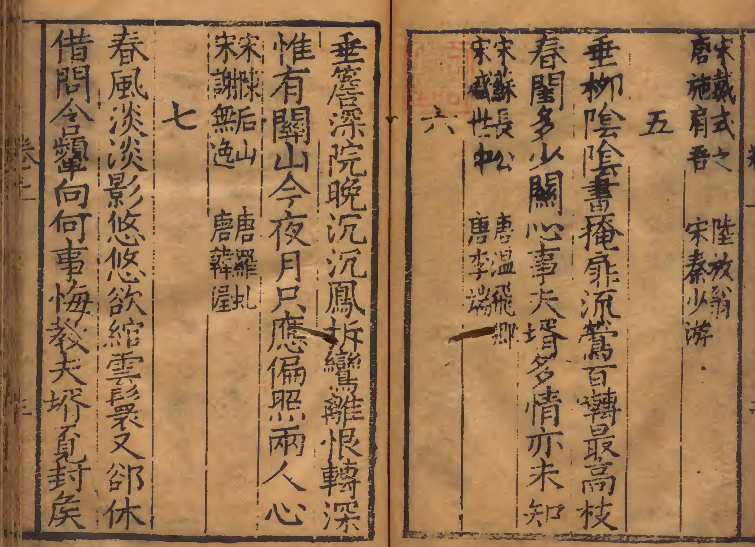 宋戴式之　陸放翁
唐施肩吾　宋秦少游
五
垂柳陰陰晝掩扉流鶯百囀最高枝
春閨多少關心事夫壻多情亦未知
宋蘇長公　唐溫飛卿
宋盛世中　唐李端
六
垂簷深院晚沉沉鳳拆鸞離恨轉深
惟有關山今夜月只應偏照兩人心
宋陳后山　唐羅虬
宋謝無逸　唐韓偓
七
春風淡淡影悠悠欲綰雲鬟又卻休
借問含顰向何事悔教夫壻覓封侯